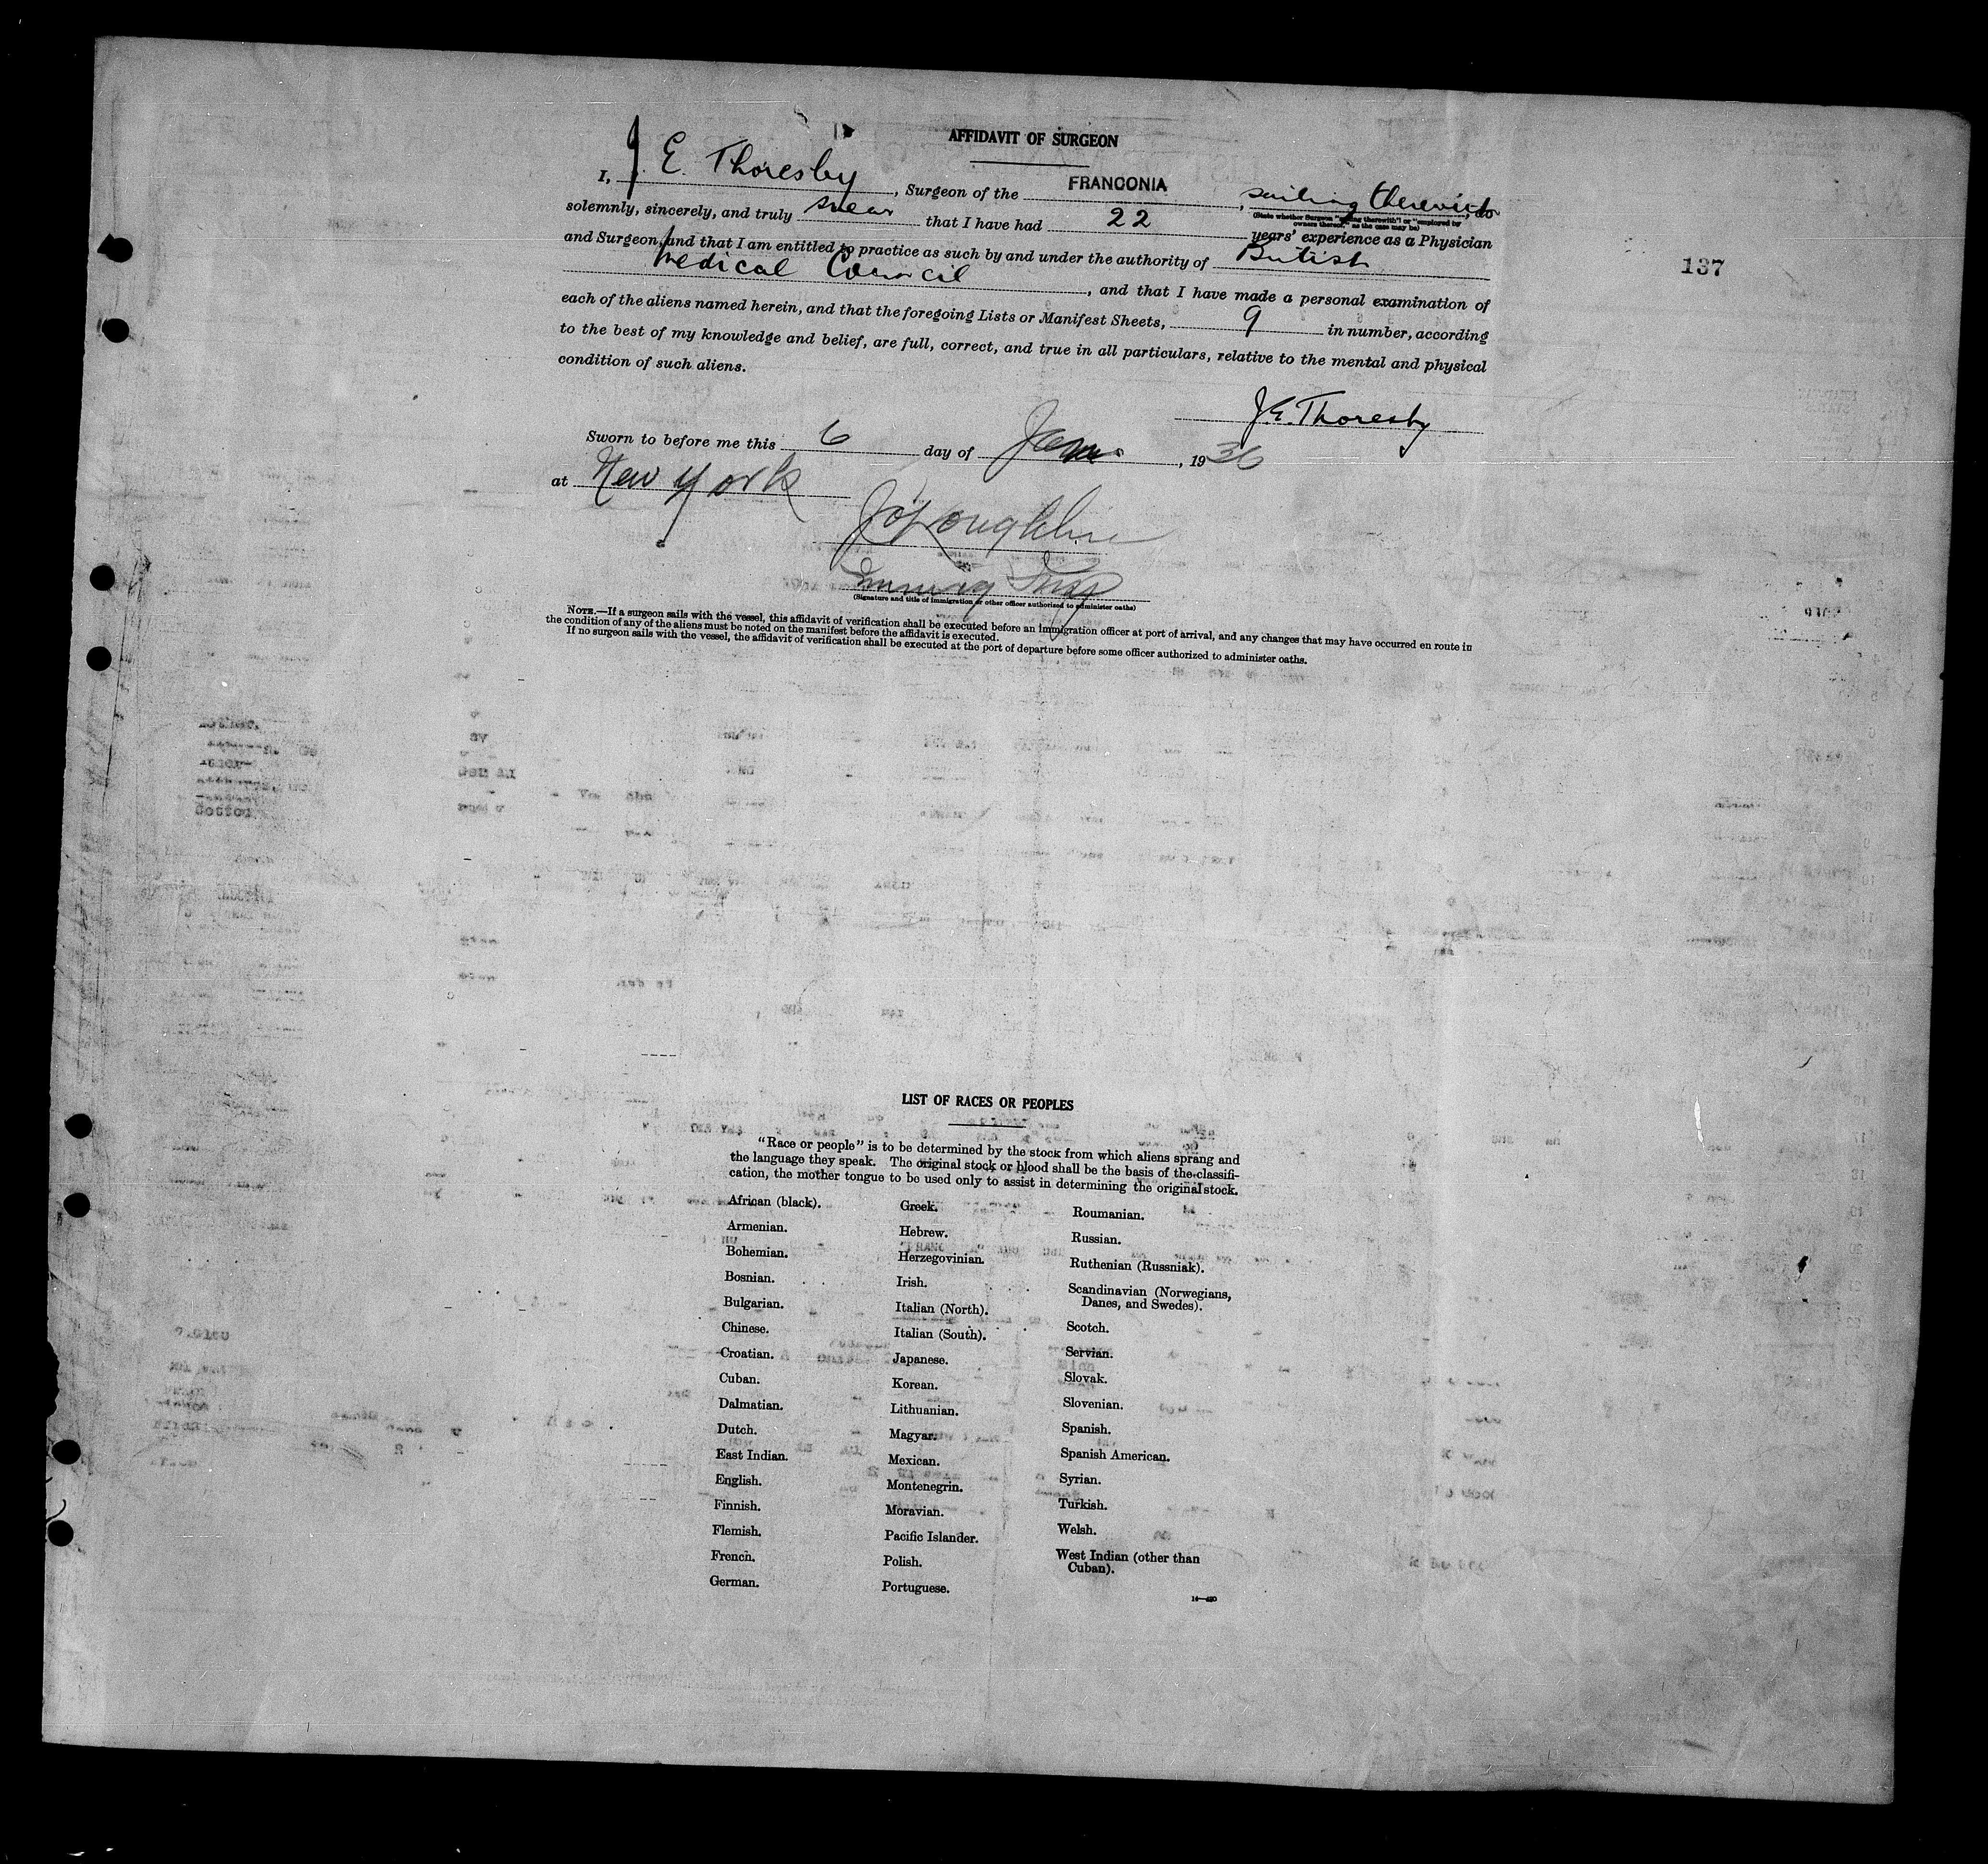 AFFIDAVIT OF SURGEON
I, J. E. Thoresby, Surgeon of the FRANCONIA, sailing therewith, do
(State whether Surgeon "sailing therewith" or "employed by
owners thereof," as the case may be)
solemnly, sincerely, and truly swear that I have had 22 years' experience as a Physician
and Surgeon, and that I am entitled to practice as such by and under the authority of British
Medical Council, and that I have made a personal examination of
each of the aliens named herein, and that the foregoing Lists or Manifest Sheets, 9 in number, according
to the best of my knowledge and belief, are full, correct, and true in all particulars, relative to the mental and physical
condition of such aliens.
137
J. E. Thoresby
Sworn to before me this 6 day of Jan, 1936
at New York
J O'Loughlin
Immig Insp
(Signature and title of immigration or other officer authorized to administer oaths)
NOTE.—If a surgeon sails with the vessel, this affidavit of verification shall be executed before an immigration officer at port of arrival, and any changes that may have occurred en route in
the condition of any of the aliens must be noted on the manifest before the affidavit is executed.
If no surgeon sails with the vessel, the affidavit of verification shall be executed at the port of departure before some officer authorized to administer oaths.
LIST OF RACES OR PEOPLES
"Race or people" is to be determined by the stock from which aliens sprang and
the language they speak. The original stock or blood shall be the basis of the classifi-
cation, the mother tongue to be used only to assist in determining the original stock.
African (black).
Armenian.
Bohemian.
Bosnian.
Bulgarian.
Chinese.
Croatian.
Cuban.
Dalmatian.
Dutch.
East Indian.
English.
Finnish.
Flemish.
French.
German.
Greek.
Hebrew.
Herzegovinian.
Irish.
Italian (North).
Italian (South).
Japanese.
Korean.
Lithuanian.
Magyar.
Mexican.
Montenegrin.
Moravian.
Pacific Islander.
Polish.
Portuguese.
Roumanian.
Russian.
Ruthenian (Russniak).
Scandinavian (Norwegians,
Danes, and Swedes).
Scotch.
Servian.
Slovak.
Slovenian.
Spanish.
Spanish American.
Syrian.
Turkish.
Welsh.
West Indian (other than
Cuban).